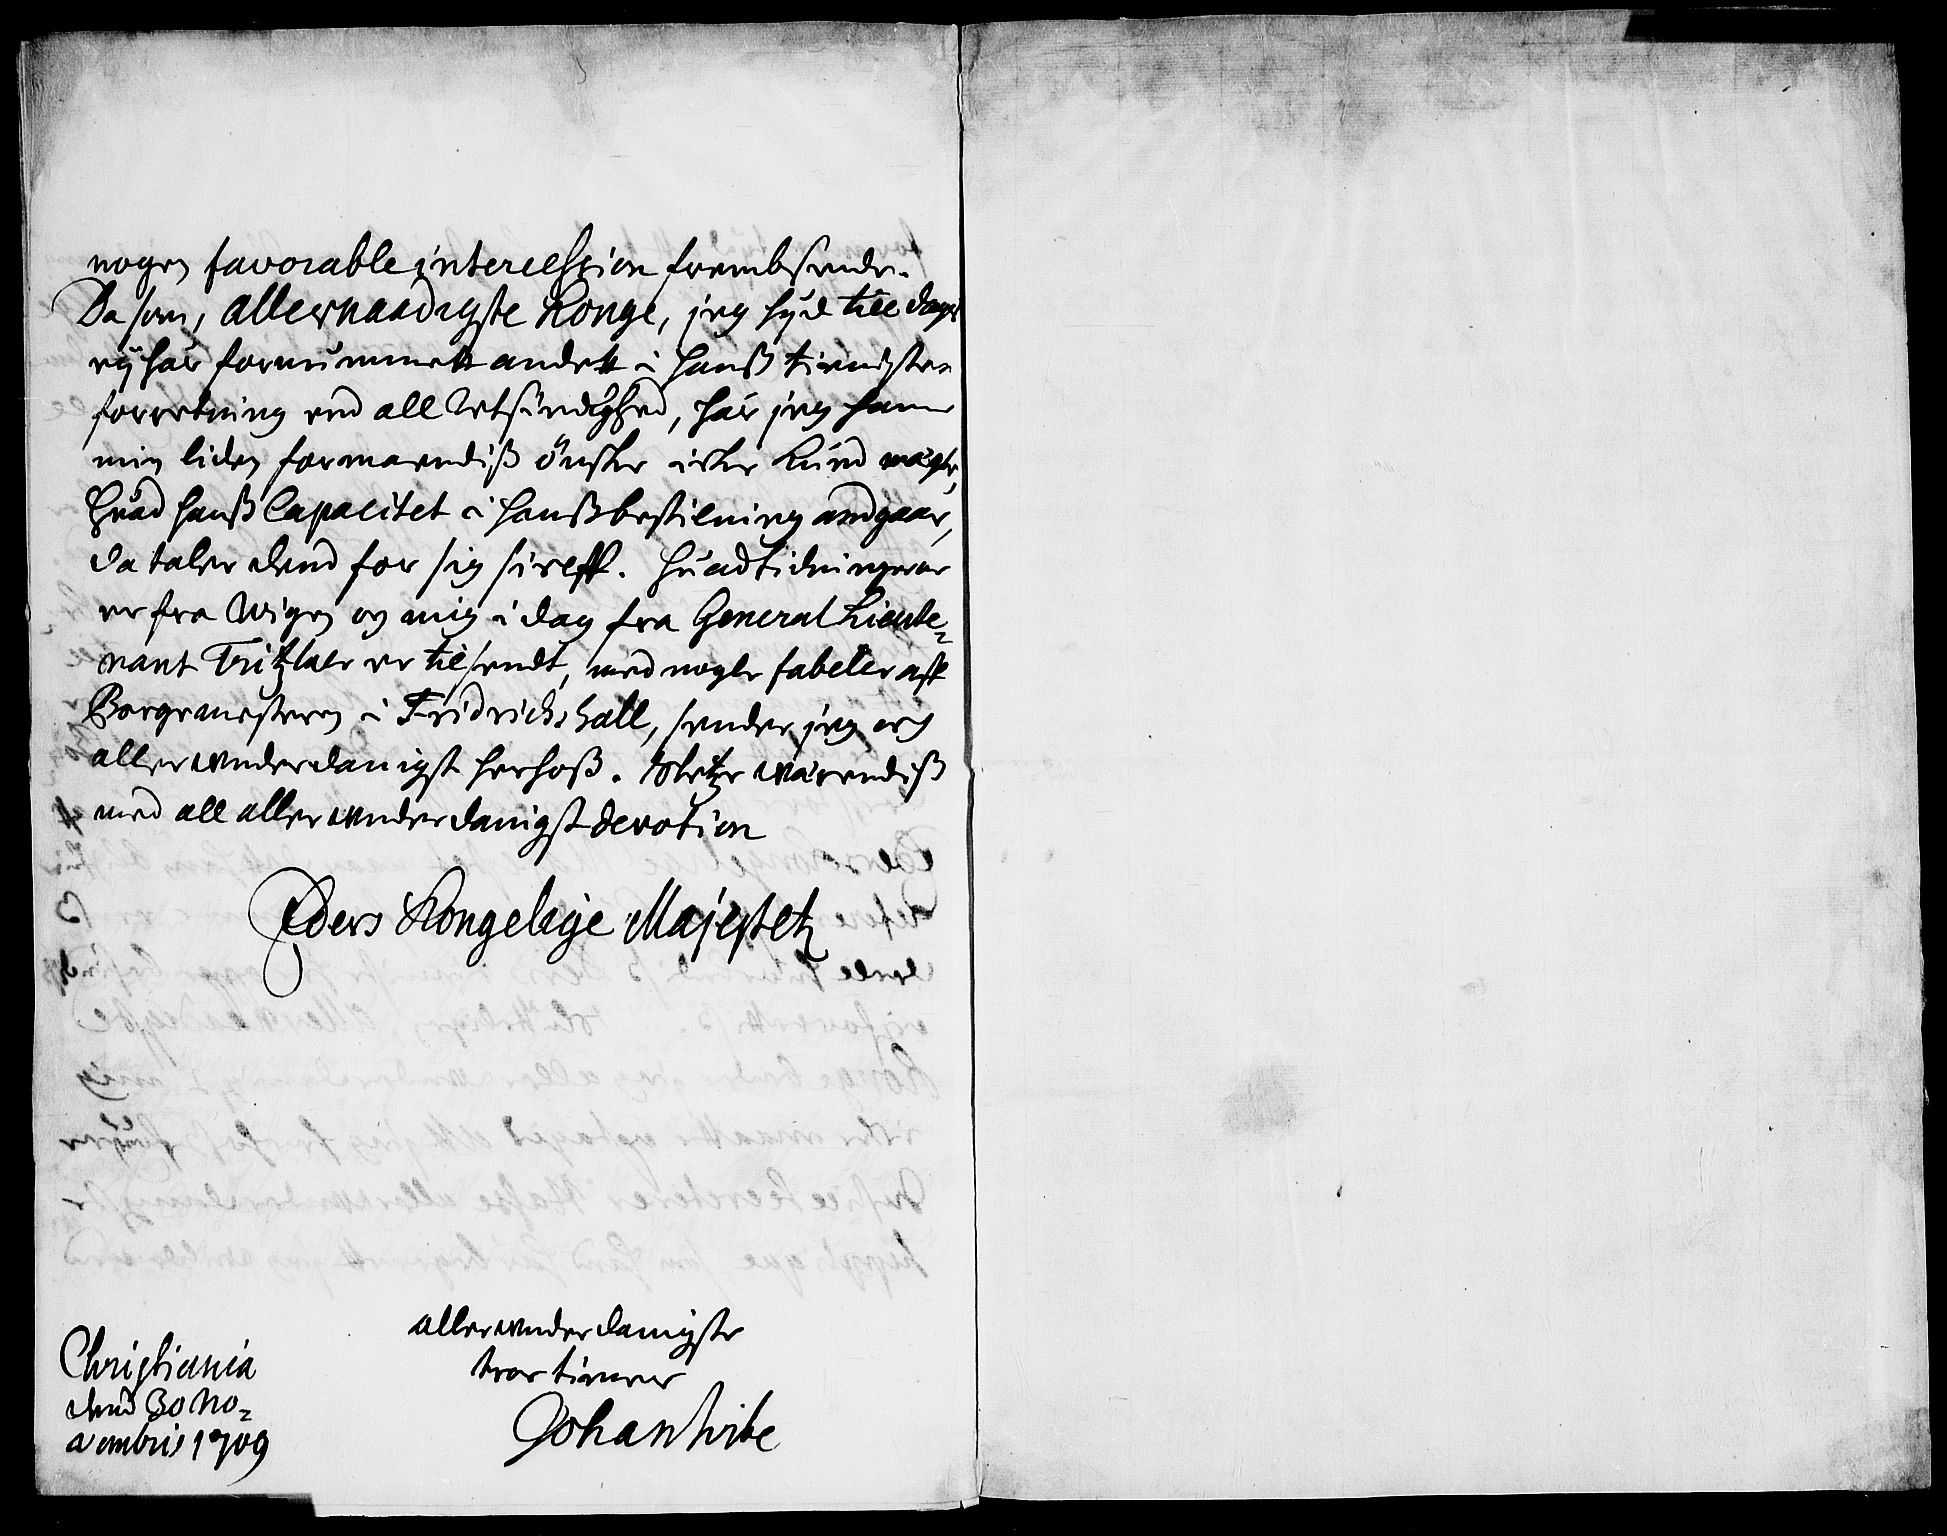 nogen favorable intercession frembsende.
Da som, allernaadigste Konge, jeg hid till dags
ej har fornummett andett i hanß tienistes
forretning end all Retsindighed, har jeg hannem
min liden formaaendiß ønske icke kund nægte,
Huad hanß Capacitet i hanß bestilning andgaar,
da taler dend for sig sielff. Huad tidninger
er fra Wigen og mig i dag fra General Lieute=
nant Tritzler er tilsendt, med nogle fabeler aff
Borgemesteren i Fridrichshall, sender jeg og
allerwnderdanigst herhoß. Stetze wærendiß
med all allerwnderdanigst devotion
Eders Kongelige Majestetz
allerwnderdanigste
troe tiener
Johan Vibe
Christiania
dend 30 No=
vembris 1709